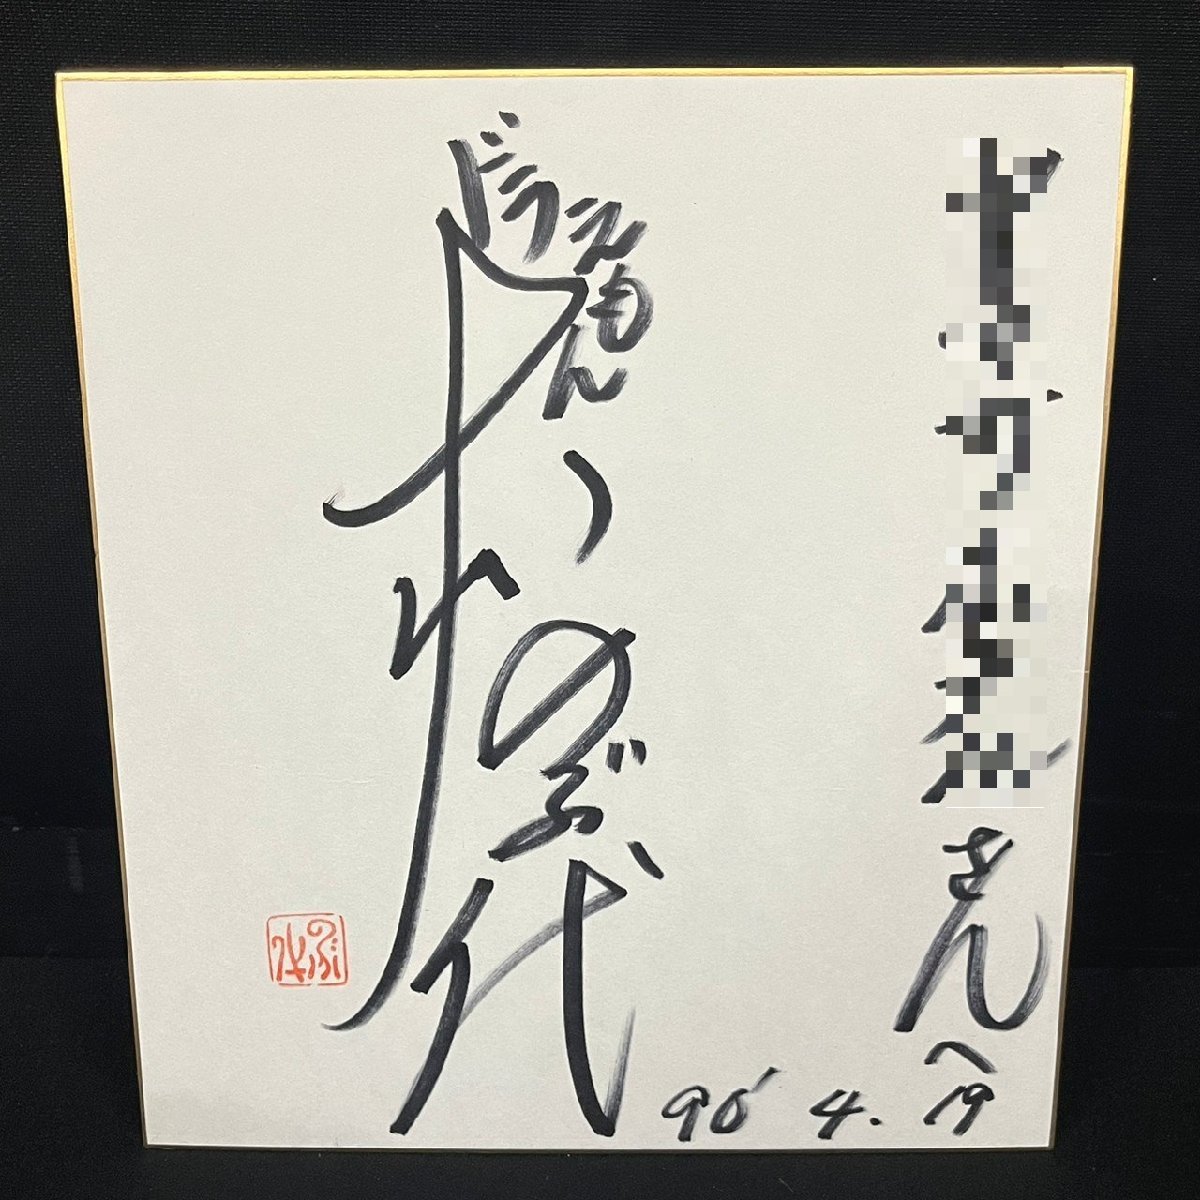 さんへ
ドラえもん
大山のぶ代
96' 4. 19
のぶ代